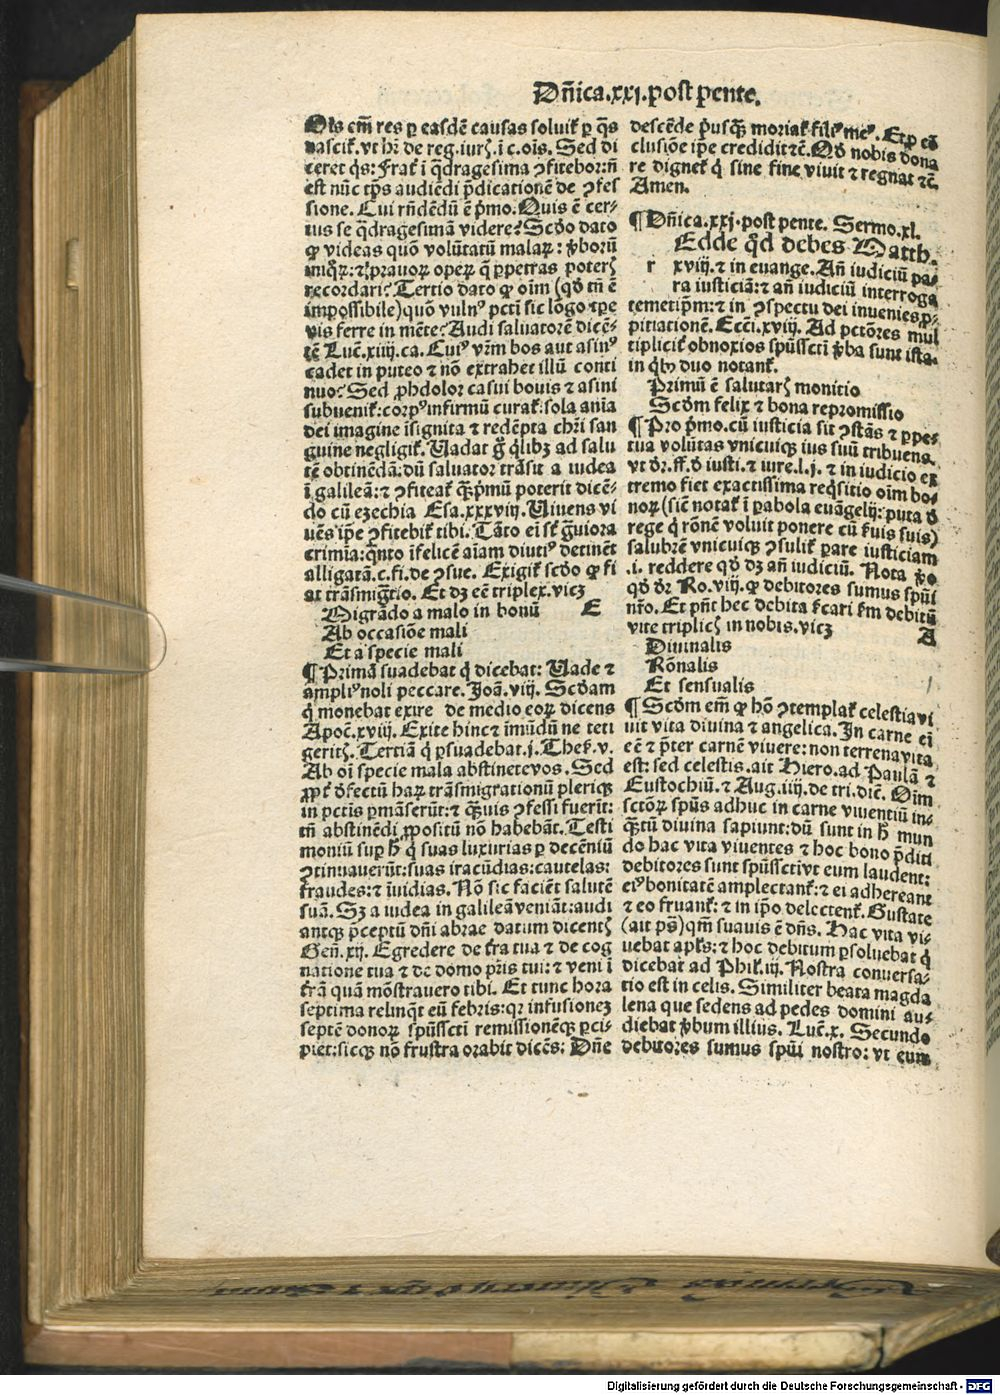 Dñica.xxj.post pente.
Oĩs em̃ res ꝑ easdẽ causas soluiť ꝑ q̃s
nasciť. vt hr̃ de reg. iurꝭ. ĩ c. oĩs. Sed di
ceret q̓s: Frať ĩ q̃dragesima ꝯfitebor: ñ
est nũc tꝑs audiẽdi p̃dicationẽ de ꝯfes
sione. Cui rñdẽdũ ẽ p̓mo. Quis ẽ cer⸗
tus se q̃dragesimã videre? Scďo dato
ꝙ videas quõ volũtatũ malaꝝ: v̓boꝝ
iniq̃ꝝ: ⁊ prauoꝝ operꝝ q̃ ꝑpetras poterꝭ
recordari? Tertio dato ꝙ oĩm (qď tñ ẽ
impossibile) quõ vulnꝰ pctĩ sic lõgo tꝑe
vis ferre in mẽte? Audi saluatorẽ dicẽ⸗
tẽ Luc̃.xiiij.ca. Cuiꝰ vr̃m bos aut asinꝰ
cadet in puteo ⁊ nõ extrahet illũ conti
nuo? Sed ꝓhdolor casui bouis ⁊ asini
subueniť: corpꝰ infirmũ curať: sola aĩa
dei imagine ĩsignita ⁊ redẽpta chr̃i san
guine negligiť. Uadat g̃ q̓libꝫ ad salu
tẽ obtinẽdã: dũ saluator trãsit a iudea
ĩ galileã: ⁊ ꝯfiteať q̃ꝫp̓mũ poterit dicẽ⸗
do cũ ezechia Esa.xxxviij. Uiuens vi
uẽs ip̃e ꝯfitebiť tibi. Tãto eĩ sť g̃uiora
crimĩa: q̃nto ĩfelicẽ aĩam diutiꝰ detinẽt
alligatã. c.fi. de ꝯsue. Exigiť scďo ꝙ fi
at trãsmig̃tio. Et dꝫ eẽ triplex. vicꝫ
Migrãdo a malo in bonũ E
Ab occasiõe mali
Et a specie mali
¶ Primã suadebat q̓ dicebat: Uade ⁊
ampliꝰ noli peccare. Joã.viij. Scďam
q̓ monebat exire de medio eoꝝ dicens
Apoc̃.xviij. Exite hinc ⁊ ĩmũdũ ne teti
geritꝭ. Tertiã q̓ ꝑsuadebat.j. Thes̃.v.
Ab oĩ specie mala abstinete vos. Sed
ꝓpť ďfectũ haꝝ trãsmigrationũ pleriqꝫ
in pctĩs ꝑmãserũt: ⁊ q̃ꝫuis ꝯfessi fuerĩt:
tñ abstinẽdi ꝓpositũ nõ habebãt. Testi
moniũ suꝑ h̃ q̓ suas luxurias ꝑ decẽniũ
ꝯtinuauerũt: suas iracũdias: cautelas:
fraudes: ⁊ ĩuidias. Nõ sic faciẽt salutẽ
suã. Sꝫ a iudea in galileã veniãt: audi
antqꝫ p̃ceptũ dñi abrae datum dicentꝭ
Geñ.xij. Egredere de t̃ra tua ⁊ de cog
natione tua ⁊ de domo p̃ris tui: ⁊ veni ĩ
t̃rã quã mõstrauero tibi. Et tunc hora
septima relinq̃t eũ febris: qꝛ infusionez
septẽ donoꝝ spũssctĩ remissionẽqꝫ ꝑci⸗
piet: sicqꝫ nõ frustra orabit dicẽs: Dñe
descẽde p̓usq̃ꝫ moriať filiꝰ meꝰ. Et ꝑ cõ
clusiõe ip̃e credidit ⁊c̃. Qď nobis dona
re digneť q̓ sine fine viuit ⁊ regnat ⁊c̃.
Amen.
¶ Dñica.xxj.post pente. Sermo.xl.
r Edde qď debes Matth.
xviij. ⁊ in euange. Añ iudiciũ pa⸗
ra iusticiã: ⁊ añ iudiciũ interroga
temetip̃m: ⁊ in ꝯspectu dei inuenies ꝓ⸗
pitiationẽ. Ecc̃i.xviij. Ad pctõres mul
tipliciť obnoxios spũssctĩ v̓ba sunt ista.
in q̓bꝰ duo notanť.
Primũ ẽ salutarꝭ monitio
Scďm felix ⁊ bona repromissio
¶ Pro p̓mo. cũ iusticia sit ꝯstãs ⁊ ꝑpe⸗
tua volũtas vnicuiqꝫ ius suũ tribuens.
vt dr̃. ff. ď iusti. ⁊ iure. l.j. ⁊ in iudicio ex
tremo fiet exactissima reqͥsitio oĩm bo⸗
noꝝ (sic̃ notať ĩ ꝑabola euãgelij: puta ď
rege q̓ rõnẽ voluit ponere cũ s̓uis suis)
salubrẽ vnicuiqꝫ ꝯsuliť ꝑare iusticiam
.i. reddere qď dꝫ añ iudiciũ. Nota ꝓo
qď dr̃ Ro.viij. ꝙ debitores sumus spũi
nr̃o. Et pñt hec debita s̓cari s̓m debitũ
vite triplicꝭ in nobis. vicꝫ A
Diuinalis
Rõnalis
Et sensualis
¶ Scďm em̃ ꝙ hõ ꝯtemplať celestia vi
uit vita diuina ⁊ angelica. In carne eĩ
eẽ ⁊ p̃ter carnẽ viuere: non terrena vita
est: sed celestis. ait Hiero. ad Paulã ⁊
Eustochiũ. ⁊ Aug.iiij. de tri. dic̃. Oĩm
sctõꝝ spũs adhuc in carne viuentiũ in⸗
q̃ꝫtũ diuina sapiunt: dũ sunt in h̃ mun
do hac vita viuentes ⁊ hoc bono p̃diti
debitores sunt spũssctĩ vt eum laudent:
eiꝰ bonitatẽ amplectanť: ⁊ ei adhereant
⁊ eo fruanť: ⁊ in ip̃o delectenť. Gustate
(ait ps̃) qm̃ suauis ẽ dñs. Hac vita vi⸗
uebat apl̃s: ⁊ hoc debitum ꝑsoluebat q̓
dicebat ad Phil̃.iij. Nostra conuersa⸗
tio est in celis. Similiter beata magda
lena que sedens ad pedes domini au⸗
diebat v̓bum illius. Luc̃.x. Secundo
debitores sumus spũi nostro: vt eum
Digitalisierung gefördert durch die Deutsche Forschungsgemeinschaft - DFG